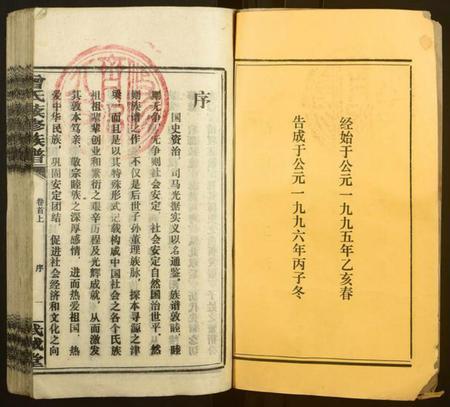 经始于公元一九九五年乙亥春
告成于公元一九九六年丙子冬
序
国史资治，司马光据实义以名通鉴，族谱敦睦，睦
则无争，无争则社会安定，社会安定自然国治世平。然
则族谱之作，不仅是后世子孙董理族脉，探本寻源之津
梁，而且是以其特殊形式记载构成中国社会之各个氏族
祖祖辈辈创业和繁衍之艰辛历程及光辉成就，从而激发
其敦本笃亲，敬宗睦族之深厚感情，进而热爱祖国，热
爱中华民族，巩固安定团结，促进社会经济和文化之向
曾氏族修族谱
卷首上
序
一
武城堂